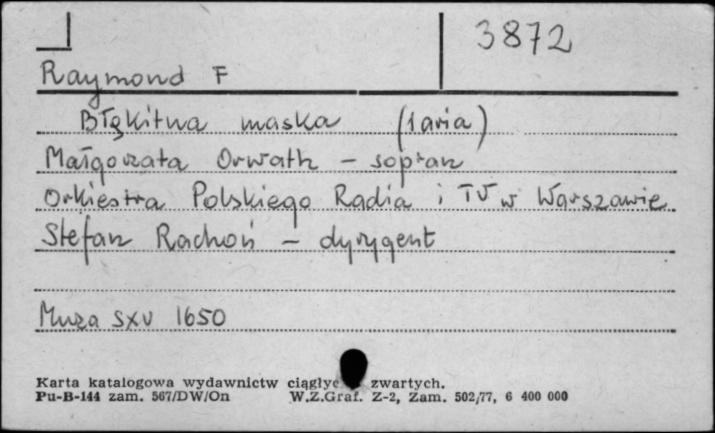 3872
Raymond F
Błękitna maska (1 aria)
Małgorzata Orwath - sopran
Orkiestra Polskiego Radia i TV w Warszawie
Stefan Rachoń - dyrygent
Muza SXV 1650
Karta katalogowa wydawnictw ciągłyc zwartych.
Pu-B-144 zam. 567/DW/On W.Z.Graf. Z-2, Zam. 502/77, 6 400 000